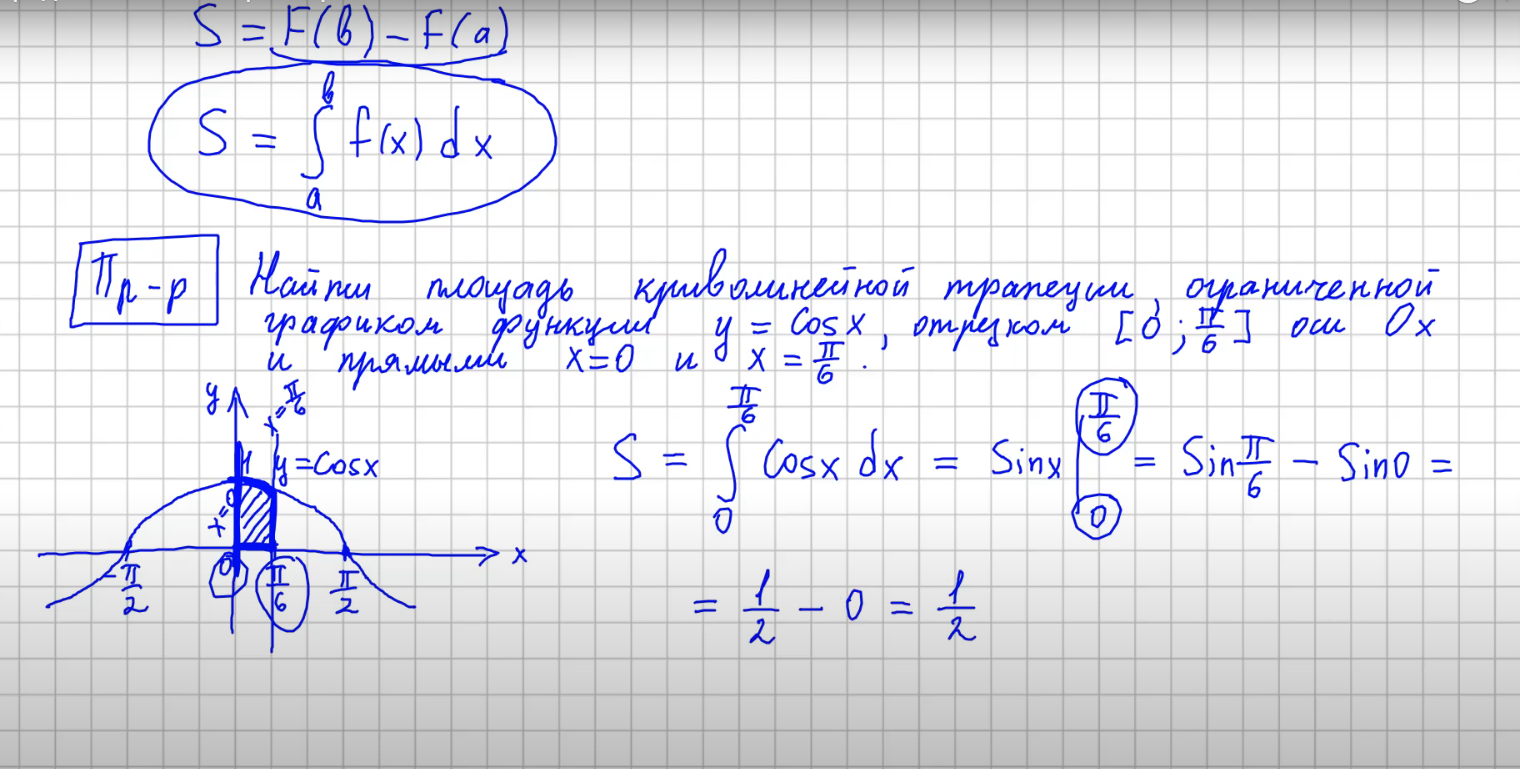 S = F(b) - F(a)
S = ∫ₐᵇ f(x) dx
Пр-р Найти площадь криволинейной трапеции, ограниченной
графиком функции y = Cosx, отрезком [0; π/6] оси Ox
и прямыми x=0 и x = π/6.
y x=π/6
1 y=Cosx
x=0
x
-π/2 0 π/6 π/2
S = ∫₀^(π/6) Cosx dx = Sinx |₀^(π/6) = Sin π/6 - Sin0 =
= 1/2 - 0 = 1/2